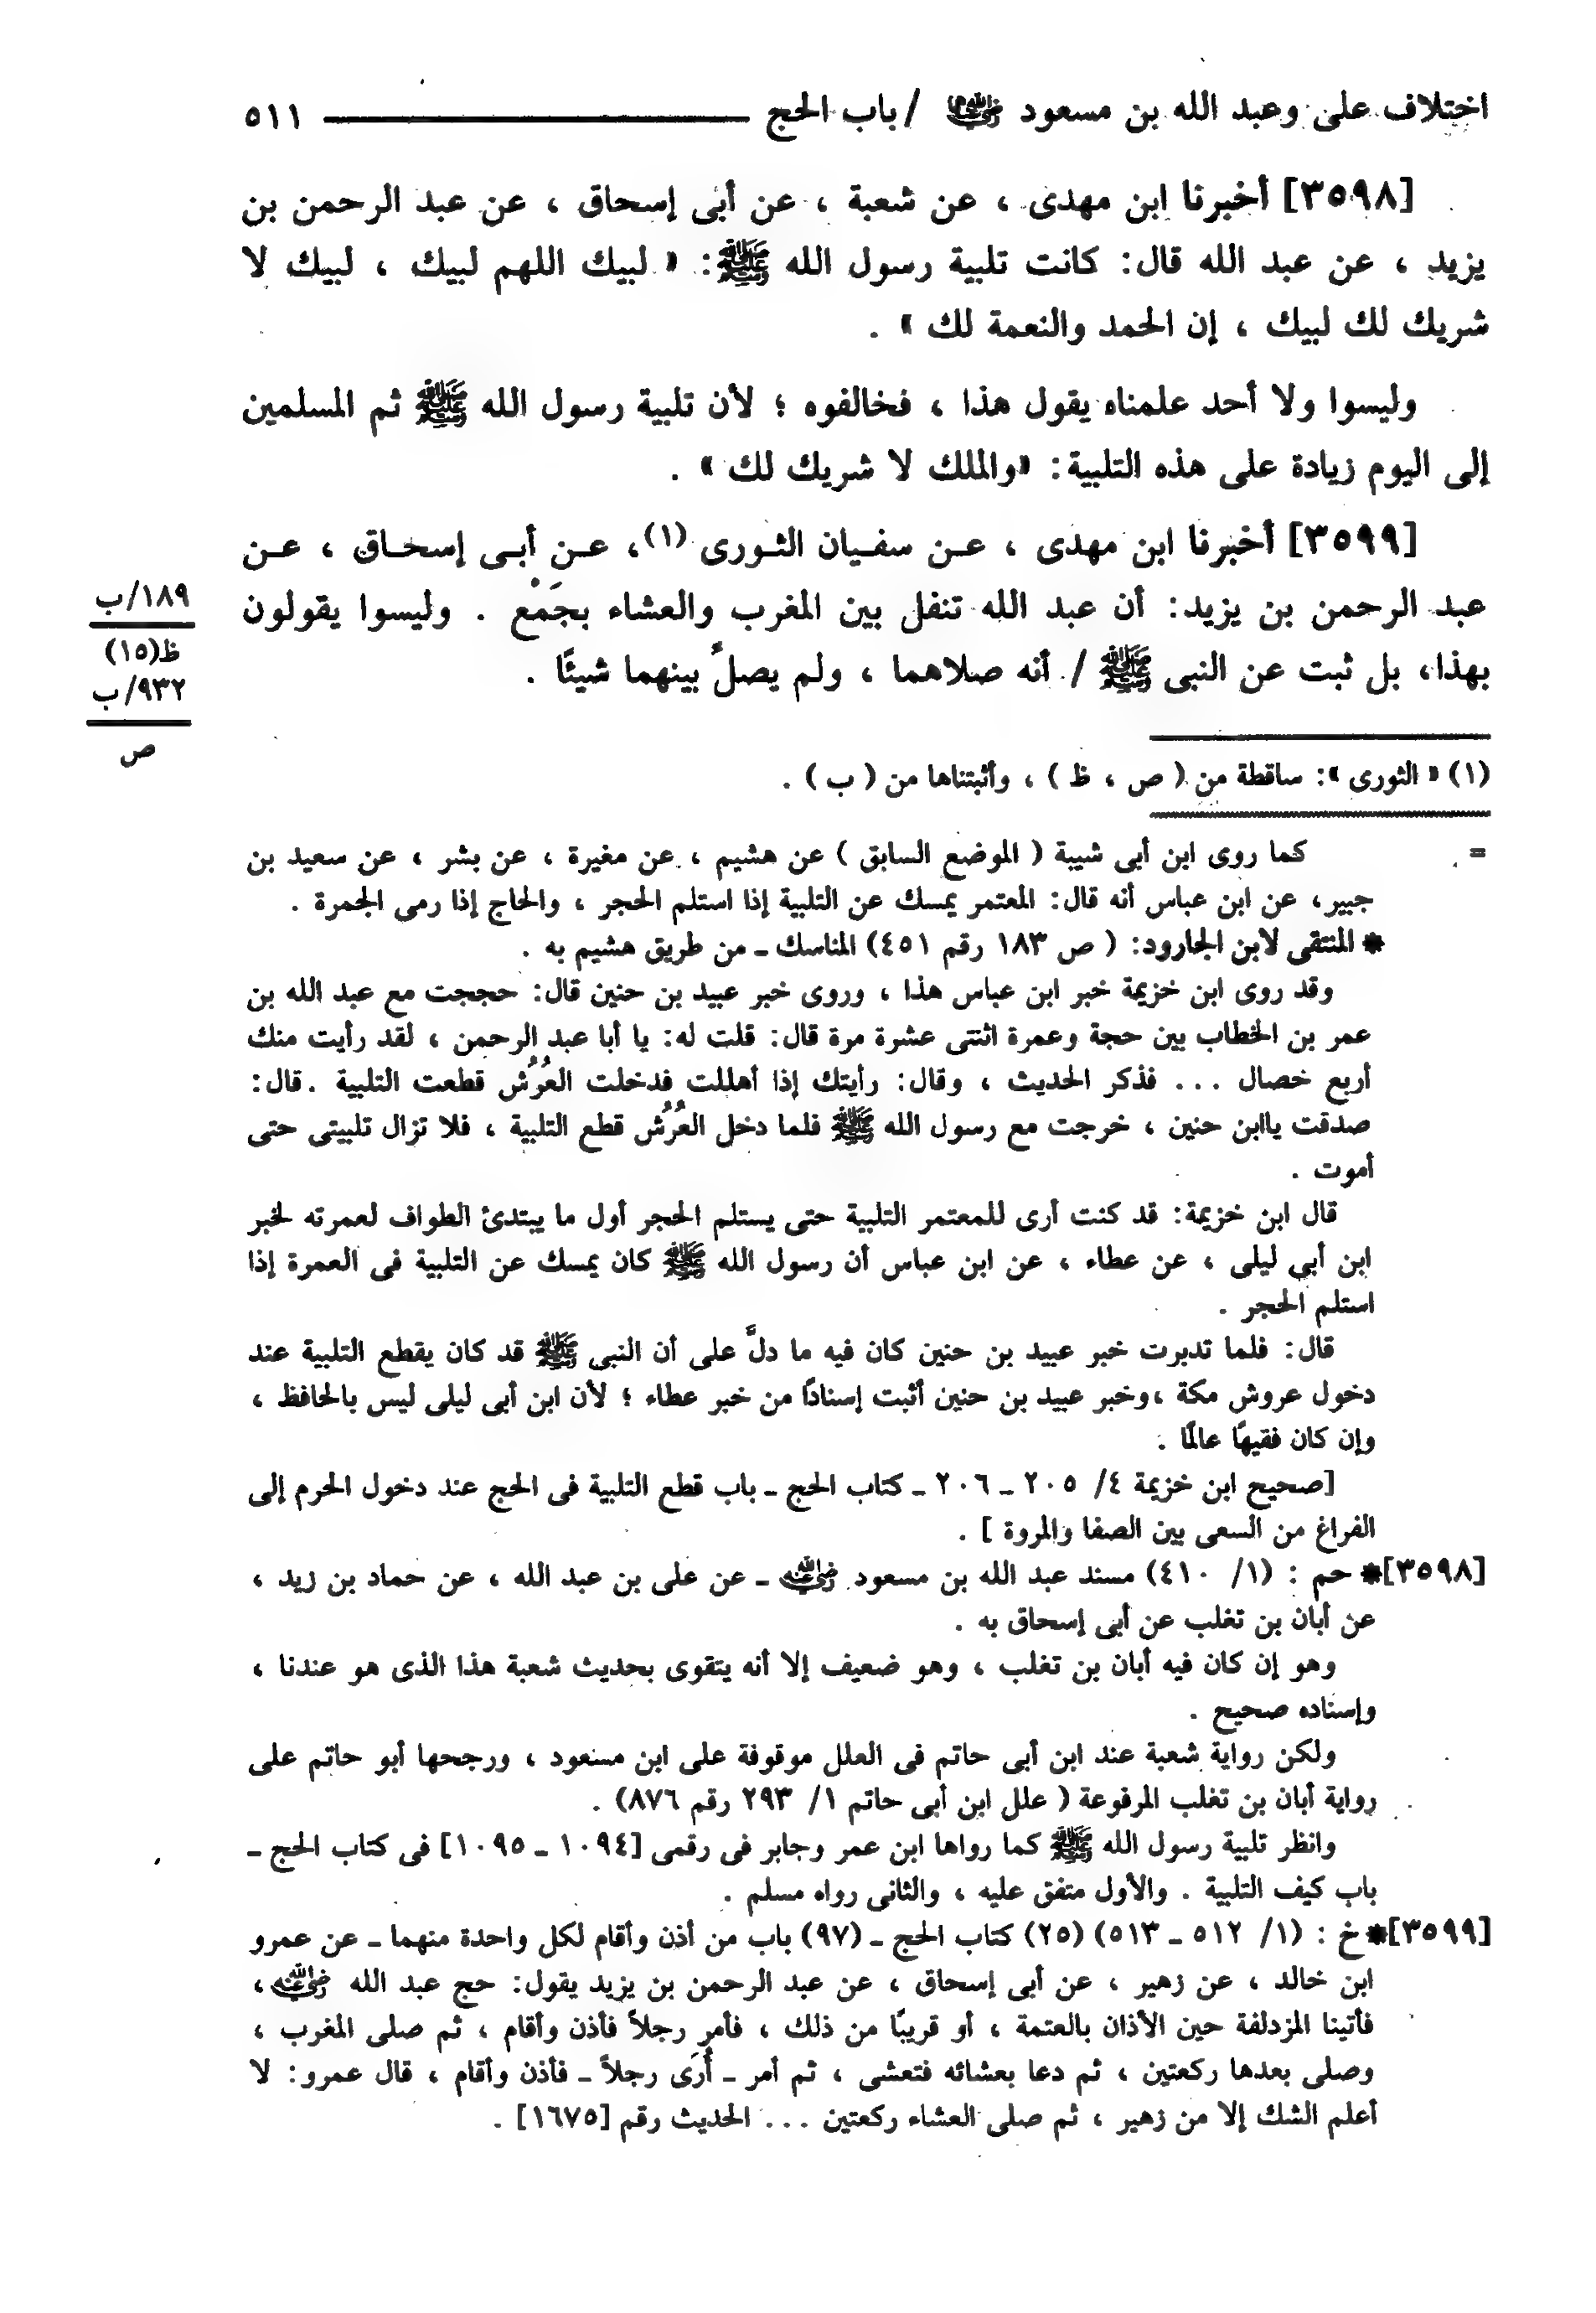 اختلاف على وعبد الله بن مسعود رضي الله عنهما / باب الحج ٥١١
[٣٥٩٨] أخبرنا ابن مهدى ، عن شعبة ، عن أبى إسحاق ، عن عبد الرحمن بن
يزيد ، عن عبد الله قال: كانت تلبية رسول الله ﷺ: « لبيك اللهم لبيك ، لبيك لا
شريك لك لبيك ، إن الحمد والنعمة لك » .
وليسوا ولا أحد علمناه يقول هذا ، فخالفوه ؛ لأن تلبية رسول الله ﷺ ثم المسلمين
إلى اليوم زيادة على هذه التلبية: «والملك لا شريك لك » .
[٣٥٩٩] أخبرنا ابن مهدى ، عـن سفـيان الثـورى (١)، عـن أبـى إسحـاق ، عـن
عبد الرحمن بن يزيد: أن عبد الله تنفل بين المغرب والعشاء بجَمْع . وليسوا يقولون
بهذا، بل ثبت عن النبى ﷺ / أنه صلاهما ، ولم يصلِّ بينهما شيئًا .
١٨٩/ب
ظ(١٥)
٩٣٢/ب
ص
(١) « الثورى »: ساقطة من ( ص ، ظ ) ، وأثبتناها من ( ب ) .
= كما روى ابن أبى شيبة ( الموضع السابق ) عن هشيم ، عن مغيرة ، عن بشر ، عن سعيد بن
جبير، عن ابن عباس أنه قال: المعتمر يمسك عن التلبية إذا استلم الحجر ، والحاج إذا رمى الجمرة .
* المنتقى لابن الجارود: ( ص ١٨٣ رقم ٤٥١) المناسك ـ من طريق هشيم به .
وقد روى ابن خزيمة خبر ابن عباس هذا ، وروى خبر عبيد بن حنين قال: حججت مع عبد الله بن
عمر بن الخطاب بين حجة وعمرة اثنتى عشرة مرة قال: قلت له: يا أبا عبد الرحمن ، لقد رأيت منك
أربع خصال ... فذكر الحديث ، وقال: رأيتك إذا أهللت فدخلت العُرُش قطعت التلبية .قال:
صدقت ياابن حنين ، خرجت مع رسول الله ﷺ فلما دخل العُرُش قطع التلبية ، فلا تزال تلبيتى حتى
أموت .
قال ابن خزيمة: قد كنت أرى للمعتمر التلبية حتى يستلم الحجر أول ما يبتدئ الطواف لعمرته لخبر
ابن أبى ليلى ، عن عطاء ، عن ابن عباس أن رسول الله ﷺ كان يمسك عن التلبية فى العمرة إذا
استلم الحجر .
قال: فلما تدبرت خبر عبيد بن حنين كان فيه ما دلَّ على أن النبى ﷺ قد كان يقطع التلبية عند
دخول عروش مكة ،وخبر عبيد بن حنين أثبت إسنادًا من خبر عطاء ؛ لأن ابن أبى ليلى ليس بالحافظ ،
وإن كان فقيهًا عالمًا .
[صحيح ابن خزيمة ٤/ ٢٠٥ ـ ٢٠٦ ـ كتاب الحج ـ باب قطع التلبية فى الحج عند دخول الحرم إلى
الفراغ من السعى بين الصفا والمروة ] .
[٣٥٩٨]* حم : (١/ ٤١٠) مسند عبد الله بن مسعود رضي الله عنه ـ عن على بن عبد الله ، عن حماد بن زيد ،
عن أبان بن تغلب عن أبى إسحاق به .
وهو إن كان فيه أبان بن تغلب ، وهو ضعيف إلا أنه يتقوى بحديث شعبة هذا الذى هو عندنا ،
وإسناده صحيح .
ولكن رواية شعبة عند ابن أبى حاتم فى العلل موقوفة على ابن مسعود ، ورجحها أبو حاتم على
رواية أبان بن تغلب المرفوعة ( علل ابن أبى حاتم ١/ ٢٩٣ رقم ٨٧٦) .
وانظر تلبية رسول الله ﷺ كما رواها ابن عمر وجابر فى رقمى [١٠٩٤ ـ ١٠٩٥] فى كتاب الحج ـ
باب كيف التلبية . والأول متفق عليه ، والثانى رواه مسلم .
[٣٥٩٩]* خ : (١/ ٥١٢ ـ ٥١٣) (٢٥) كتاب الحج ـ (٩٧) باب من أذن وأقام لكل واحدة منهما ـ عن عمرو
ابن خالد ، عن زهير ، عن أبى إسحاق ، عن عبد الرحمن بن يزيد يقول: حج عبد الله رضي الله عنه ،
فأتينا المزدلفة حين الأذان بالعتمة ، أو قريبًا من ذلك ، فأمر رجلاً فأذن وأقام ، ثم صلى المغرب ،
وصلى بعدها ركعتين ، ثم دعا بعشائه فتعشى ، ثم أمر ـ أُرَى رجلاً ـ فأذن وأقام ، قال عمرو: لا
أعلم الشك إلا من زهير ، ثم صلى العشاء ركعتين ... الحديث رقم [١٦٧٥] .